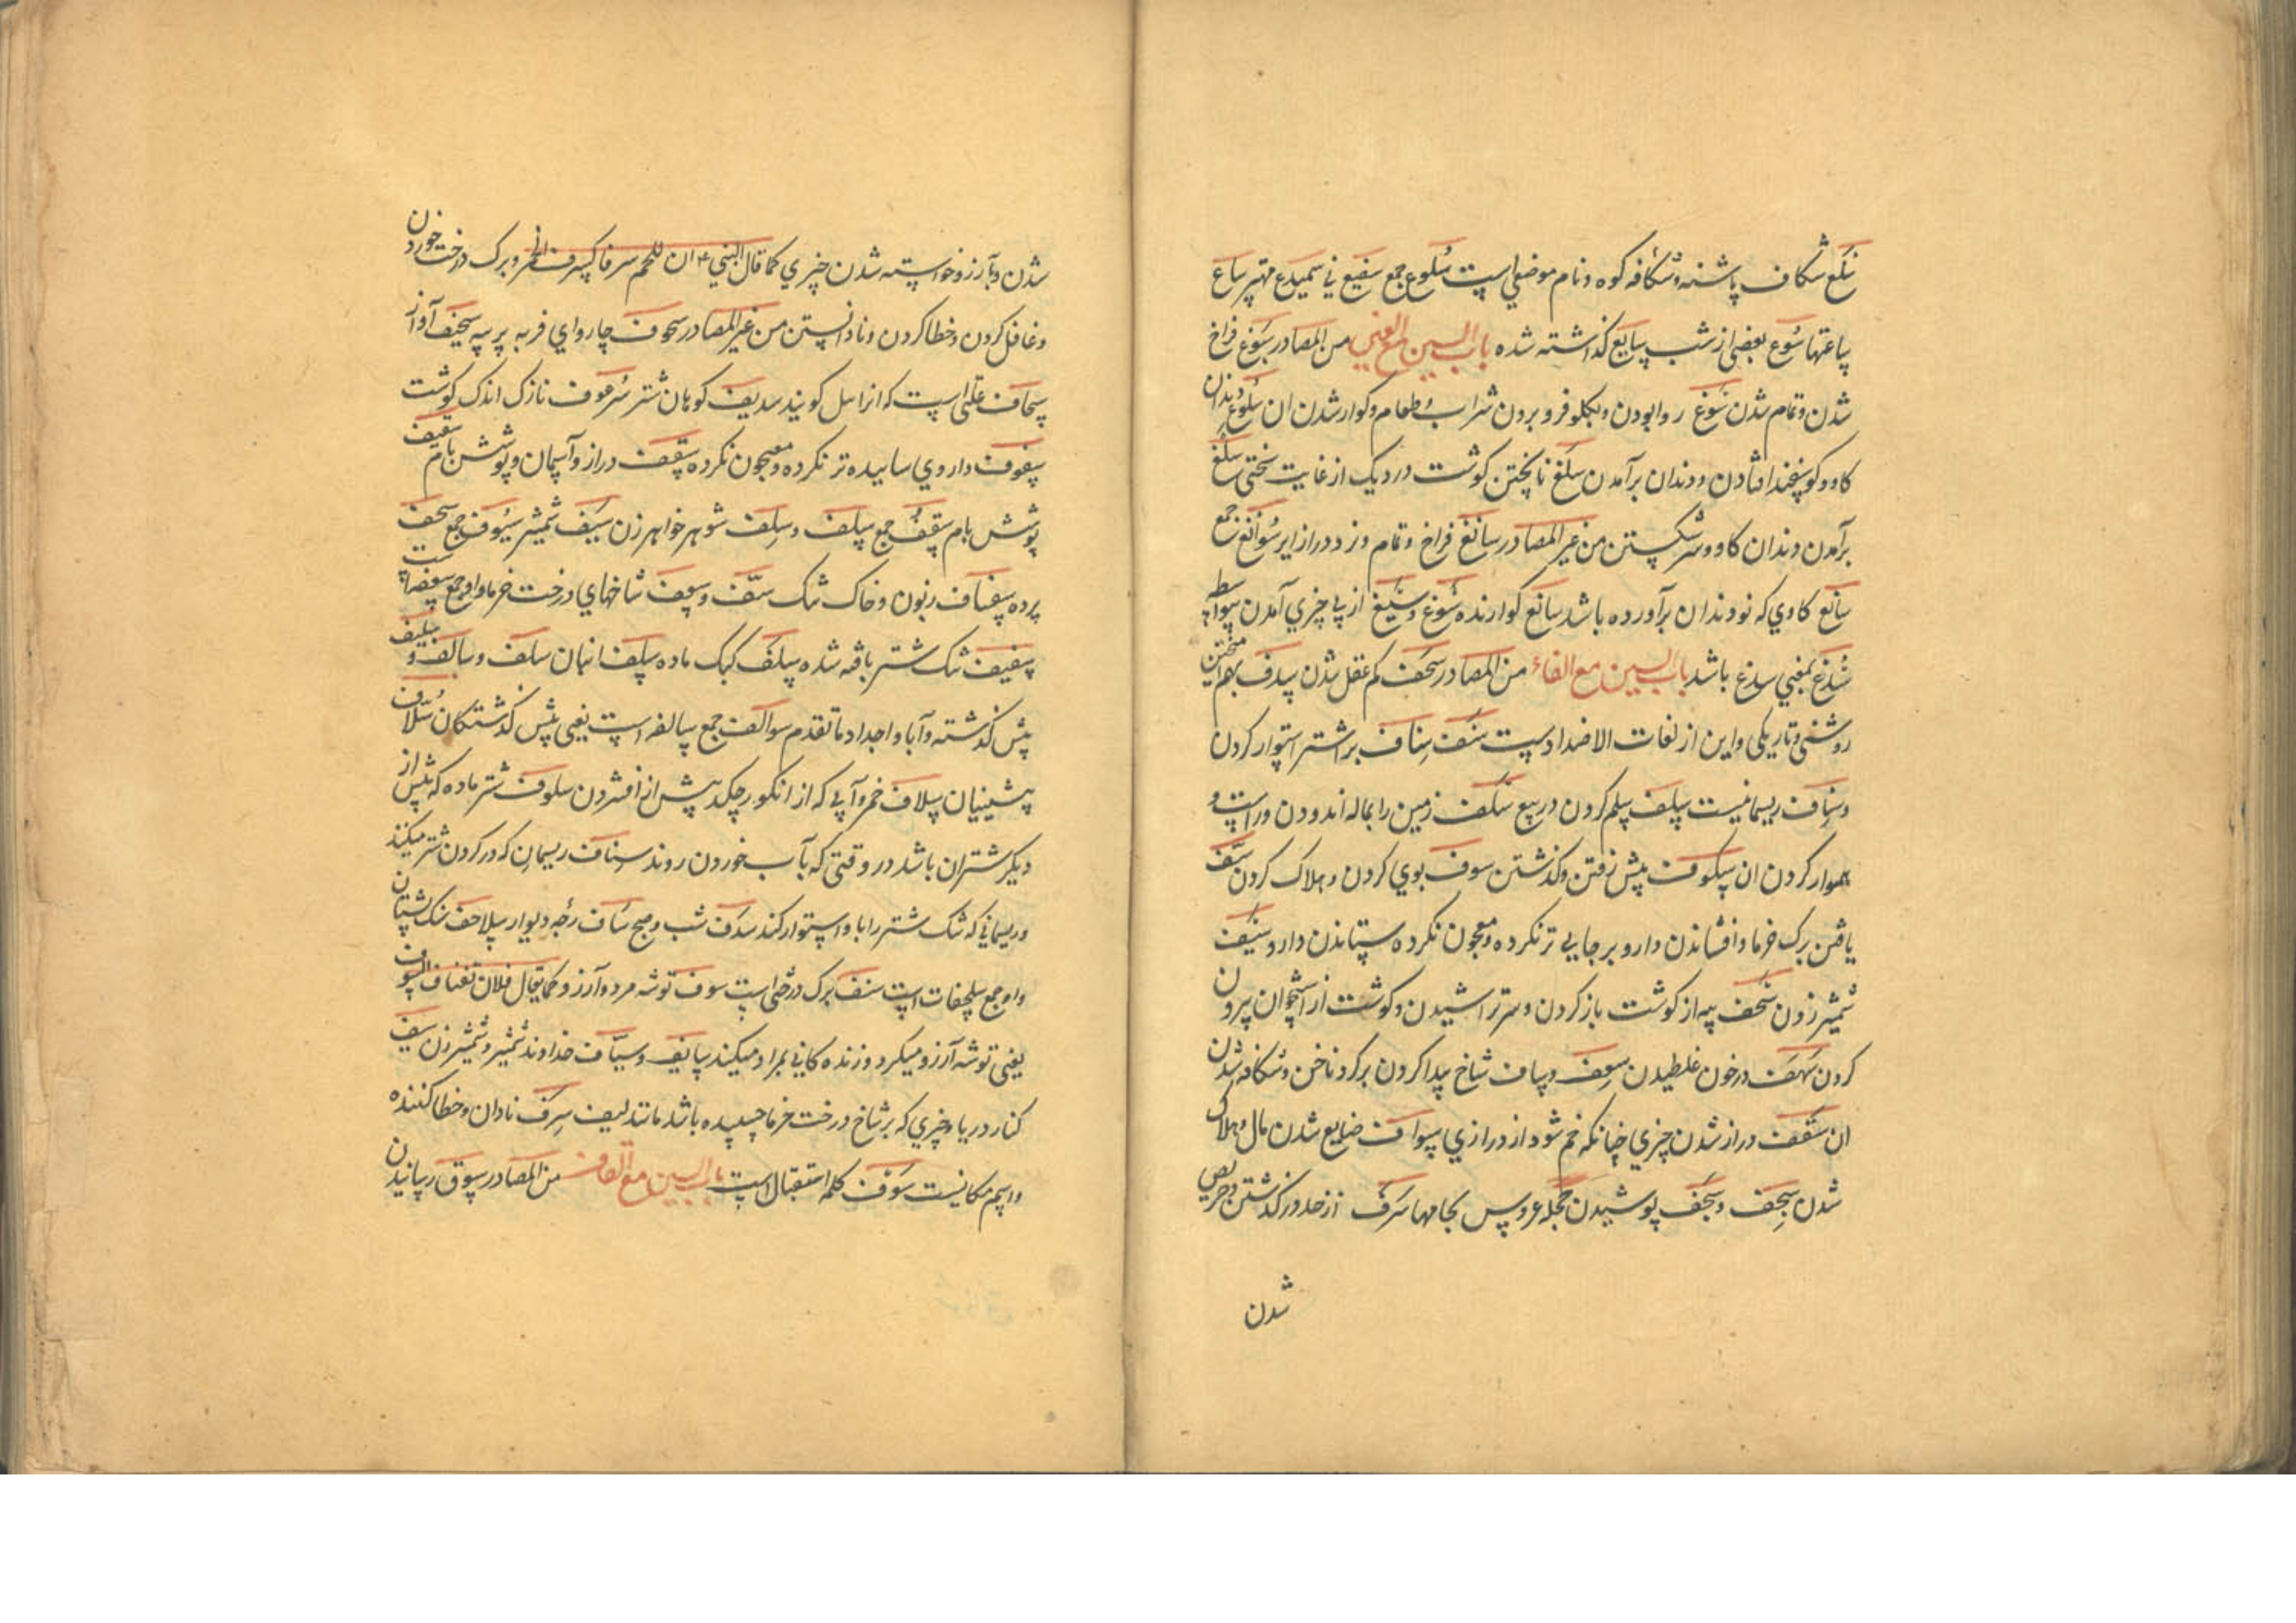 سلع شکاف پاشنه و شکافه کوه و نام موضعی است سلوع جمع سفیع نی سمیدع مهتر ساع
ساعتها سوع بعضی از شب سایع کذاشته شده باب السین مع الغین من المصادر سبوغ فراخ
شدن و تمام شدن سوغ روا بودن و بکلو فرو بردن شراب و طعام و کوار شدن ان سلوغ دندان
کاو و کوسفند افتادن و دندان برآمدن سلغ ناپختن کوشت در دیک از غایت سختی سلغ
برآمدن دندان کاو و سر شکستن من غیر المصادر سابغ فراخ و تمام و زره دراز سوابغ جمع
سالغ کاوی که نو دندان برآورده باشد سائغ کوارنده سوغ و سیغ از پی چیزی آمدن بیواسطه
سدغ بمعنی صدغ باشد باب السین مع الفاء من المصادر سخف کم عقل شدن سدف بهم آمیختن
روشنی و تاریکی و این از لغات الاضداد است سنف سناف بر اشتر استوار کردن
و سناف ریسمانیست سلف سلم کردن در بیع سلف زمین را بماله اندودن و راست و
هموار کردن ان سلوف پیش رفتن و کذشتن سوف بوی کردن و هلاک کردن سف
بافتن برک خرما و افشاندن دارو بر جایی تر نکرده و معجون نکرده ستاندن دارو سیف
شمشیر زدن سحف پیه از کوشت باز کردن و سر تراشیدن و کوشت از استخوان بیرون
کردن سهف در خون غلطیدن سعف و ساف شاخ پیدا کردن بر کرد ناخن و شکافه شدن
ان سقف دراز شدن چیزی چنانکه خم شود از درازی سواف ضایع شدن مال و هلاک
شدن سجف و سجف پوشیدن حجله عروس بجامها سرف از حد در کذشتن و حریص
شدن
شدن و بآرزو خواسته شدن چیزی کما قال النبی ان للحم سرفا کسرف الخمر و برک درخت خوردن
و غافل کردن و خطا کردن و نادانستن من غیر المصادر سحوف چاروای فربه پر پیه سحیف آواز
سحاف علتی است که انرا سل کویند سدیف کوهان شتر سرعوف نازک اندک کوشت
سفوف داروی ساییده تر نکرده و معجون نکرده سقف دراز و آسمان و پوشش بام سقیف
پوشش بام سقف جمع سلف و سلف شوهر خواهر زن سیف شمشیر سیوف جمع سجف
پرده سفساف زبون و خاک تنک سف و سعف شاخهای درخت خرما و او جمع سعفه است
سفیف تنک شتر بافته شده سلف کبک ماده سلف انبان سلف و سالف و سلیف
پیش کذشته و آبا و اجداد ما تقدم سوالف جمع سالفه است یعنی پیش کذشتکان سلاف
پیشینیان سلاف خمر و آبی که از انکور چکد پیش از افشردن سلوف شتر ماده که پیش از
دیکر شتران باشد در وقتی که بآب خوردن روند سناف ریسمان که در کردن شتر میکنند
و ریسمانی که تنک شتر را با او استوار کنند سدف شب و صبح ساف رجه دیوار سلاحف سنک پشتان
و او جمع سلحفات است سنف برک درختی است سوف توشه مرد و آرزو کما یقال فلان یقتات السوف
یعنی توشه آرزو میکرد و زنده کانی بمراد میکند سایف و سیاف خداوند شمشیر و شمشیر زن سیف
کنار دریا و چیزی که بر شاخ درخت خرما چسپیده باشد مانند لیف سرف نادان و خطا کننده
و اسم مکانیست سوف کلمه استقبال است باب السین مع القاف من المصادر سوق رسانیدن